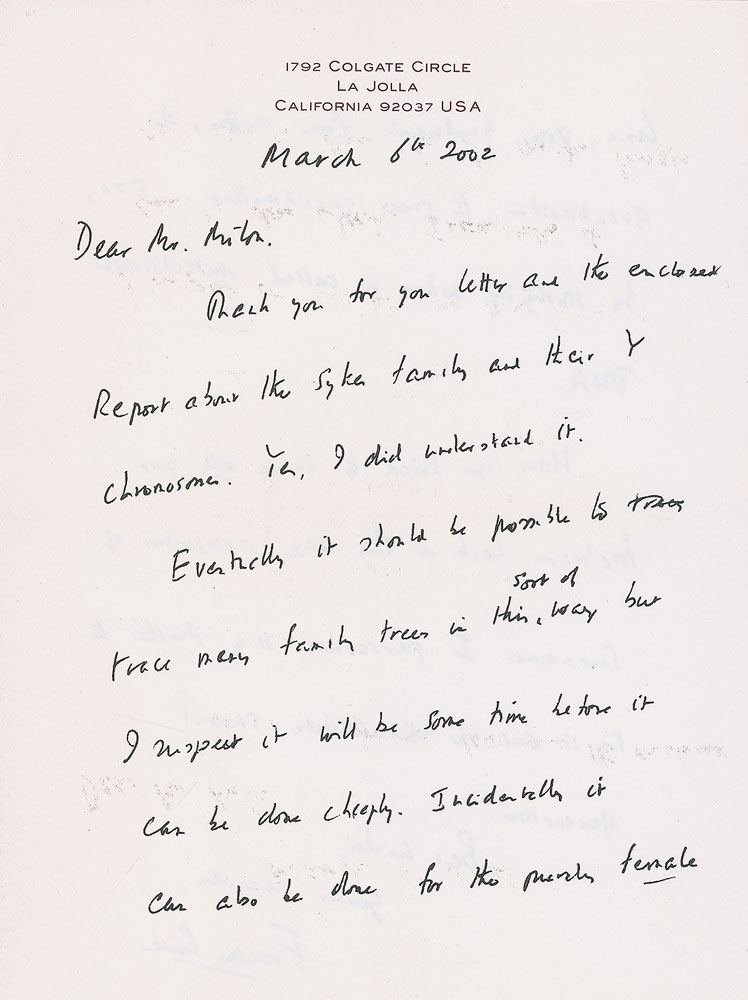 1792 COLGATE CIRCLE
LA JOLLA
CALIFORNIA 92037 USA
March 6th 2002
Dear Mr. Milton.
Thank you for you letter and the enclosed
Report about the Sykes family and their Y
chromosomes. Yes, I did understand it.
Eventually it should be possible to
sort of
trace many family trees in this, way but
I suspect it will be some time before it
can be done cheaply. Incidentally it
can also be done for the purely female